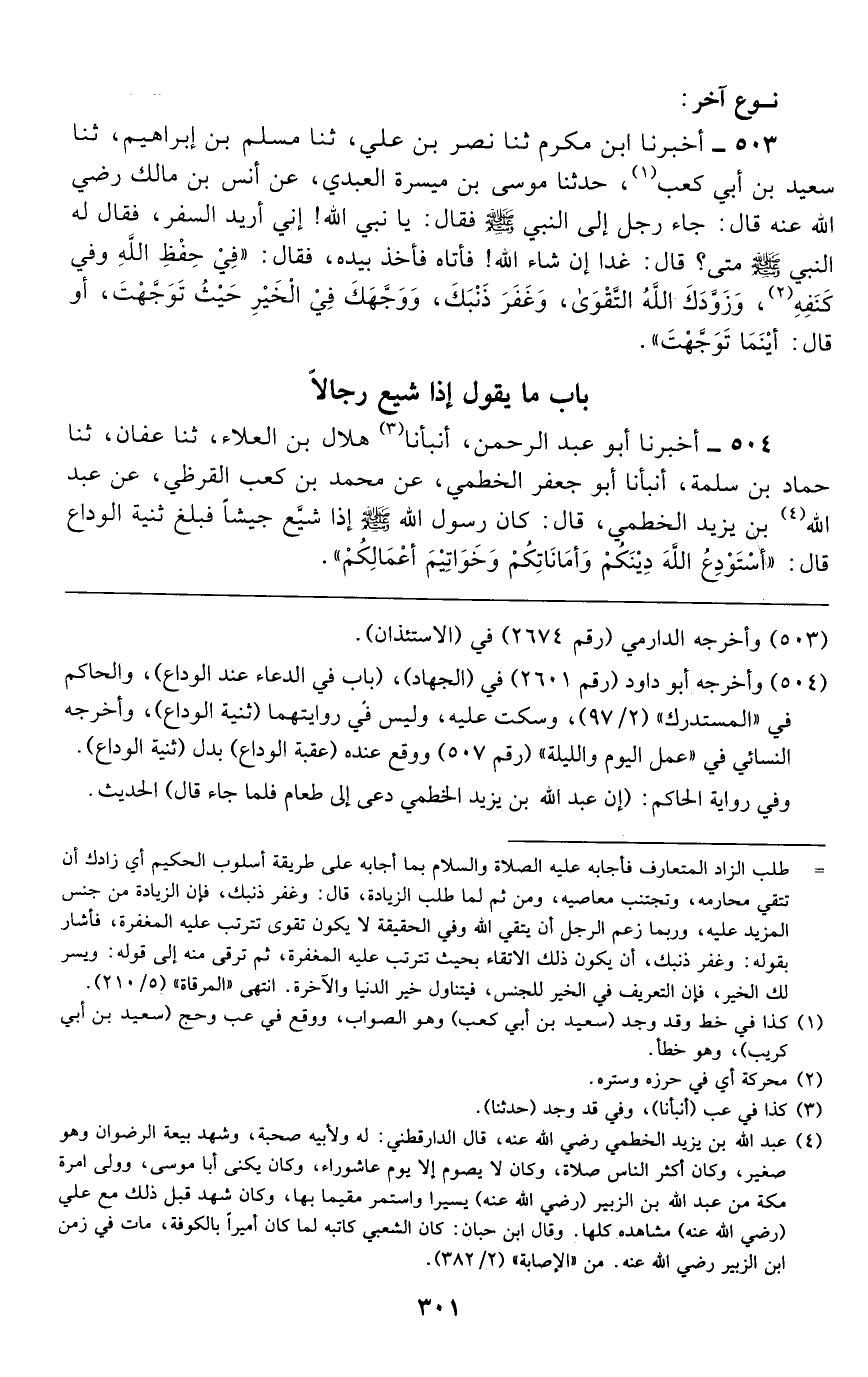 نـوع آخر :
٥٠٣ ـ أخبرنا ابن مكرم ثنا نصر بن علي، ثنا مسلم بن إبراهيم، ثنا
سعيد بن أبي كعب(١)، حدثنا موسى بن ميسرة العبدي، عن أنس بن مالك رضي
الله عنه قال: جاء رجل إلى النبي ﷺ فقال: يا نبي الله! إني أريد السفر، فقال له
النبي ﷺ متى؟ قال: غدا إن شاء الله! فأتاه فأخذ بيده، فقال: «فِيْ حِفْظِ اللَّهِ وفي
كَنَفِهِ(٢)، وَزَوَّدَكَ اللَّهُ التَّقْوَىٰ، وَغَفَرَ ذَنْبَكَ، وَوَجَّهَكَ فِيْ الْخَيْرِ حَيْثُ تَوَجَّهْتَ، أو
قال: أَيْنَمَا تَوَجَّهْتَ».
باب ما يقول إذا شيع رجالاً
٥٠٤ ـ أخبرنا أبو عبد الرحمن، أنبأنا(٣) هلال بن العلاء، ثنا عفان، ثنا
حماد بن سلمة، أنبأنا أبو جعفر الخطمي، عن محمد بن كعب القرظي، عن عبد
الله(٤) بن يزيد الخطمي، قال: كان رسول الله ﷺ إذا شيَّع جيشاً فبلغ ثنية الوداع
قال: «أَسْتَوْدِعُ اللَّهَ دِيْنَكُمْ وَأَمَانَاتِكُمْ وَخَوَاتِيْمَ أَعْمَالِكُمْ».
(٥٠٣) وأخرجه الدارمي (رقم ٢٦٧٤) في (الاستئذان).
(٥٠٤) وأخرجه أبو داود (رقم ٢٦٠١) في (الجهاد)، (باب في الدعاء عند الوداع)، والحاكم
في «المستدرك» (٢/ ٩٧)، وسكت عليه، وليس في روايتهما (ثنية الوداع)، وأخرجه
النسائي في «عمل اليوم والليلة» (رقم ٥٠٧) ووقع عنده (عقبة الوداع) بدل (ثنية الوداع).
وفي رواية الحاكم: (إن عبد الله بن يزيد الخطمي دعى إلى طعام فلما جاء قال) الحديث.
= طلب الزاد المتعارف فأجابه عليه الصلاة والسلام بما أجابه على طريقة أسلوب الحكيم أي زادك أن
تتقي محارمه، وتجتنب معاصيه، ومن ثم لما طلب الزيادة، قال: وغفر ذنبك، فإن الزيادة من جنس
المزيد عليه، وربما زعم الرجل أن يتقي الله وفي الحقيقة لا يكون تقوى تترتب عليه المغفرة، فأشار
بقوله: وغفر ذنبك، أن يكون ذلك الاتقاء بحيث تترتب عليه المغفرة، ثم ترقى منه إلى قوله: ويسر
لك الخير، فإن التعريف في الخير للجنس، فيتناول خير الدنيا والآخرة. انتهى «المرقاة» (٥/ ٢١٠).
(١) كذا في خط وقد وجد (سعيد بن أبي كعب) وهو الصواب، ووقع في عب وحج (سعيد بن أبي
كريب)، وهو خطأ.
(٢) محركة أي في حرزه وستره.
(٣) كذا في عب (أنبأنا)، وفي قد وجد (حدثنا).
(٤) عبد الله بن يزيد الخطمي رضي الله عنه، قال الدارقطني: له ولأبيه صحبة، وشهد بيعة الرضوان وهو
صغير، وكان أكثر الناس صلاة، وكان لا يصوم إلا يوم عاشوراء، وكان يكنى أبا موسى، وولى امرة
مكة من عبد الله بن الزبير (رضي الله عنه) يسيرا واستمر مقيما بها، وكان شهد قبل ذلك مع علي
(رضي الله عنه) مشاهده كلها. وقال ابن حبان: كان الشعبي كاتبه لما كان أميراً بالكوفة، مات في زمن
ابن الزبير رضي الله عنه. من «الإصابة» (٢/ ٣٨٢).
٣٠١